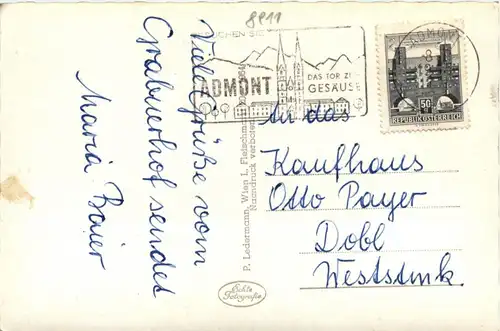 8811
BESUCHEN SIE
ADMONT
DAS TOR ZUM
GESÄUSE
ADMONT
8
50 g
REPUBLIK ÖSTERREICH
Viele Grüße vom
Grabnerhof sendet
Maria Baier
P. Ledermann, Wien I, Fleischma
Nachdruck verboten
Echte
Fotografie
An das
Kaufhaus
Otto Payer
Dobl
Weststmk.